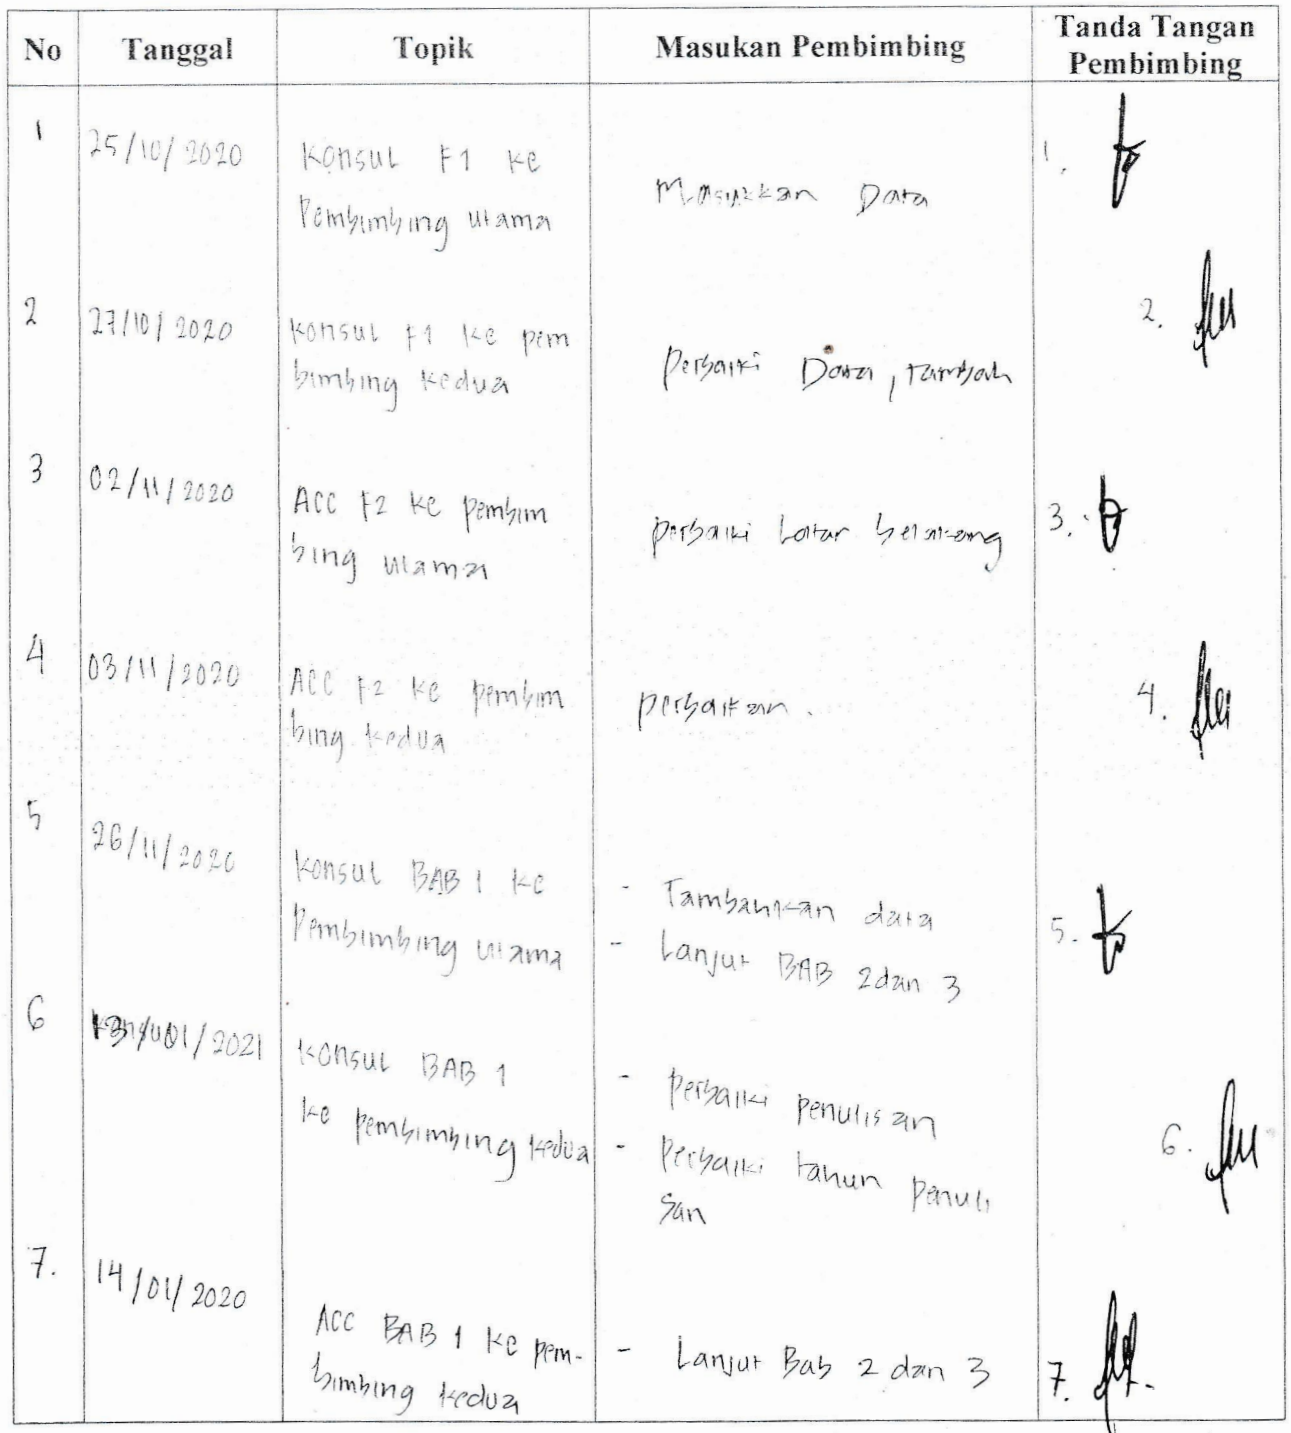 No Tanggal Topik Masukan Pembimbing Tanda Tangan Pembimbing
1 25/10/2020 Konsul F1 ke
Pembimbing utama
Masukkan Data
1.
2 27/10/2020 Konsul F1 ke pem
bimbing kedua
Perbaiki Data, tambah
2.
3 02/11/2020 ACC F2 ke pembim
bing utama
perbaiki Latar belakang
3.
4 03/11/2020 ACC F2 ke pembim
bing kedua
perbaikan.
4.
5 26/11/2020 Konsul BAB 1 ke
Pembimbing utama
- Tambahkan data
- Lanjut BAB 2 dan 3
5.
6 13/01/2021 Konsul BAB 1
ke pembimbing kedua
- Perbaiki penulisan
- Perbaiki tahun penuli
san
6.
7. 14/01/2020 ACC BAB 1 ke pem-
bimbing kedua
- Lanjut Bab 2 dan 3
7.